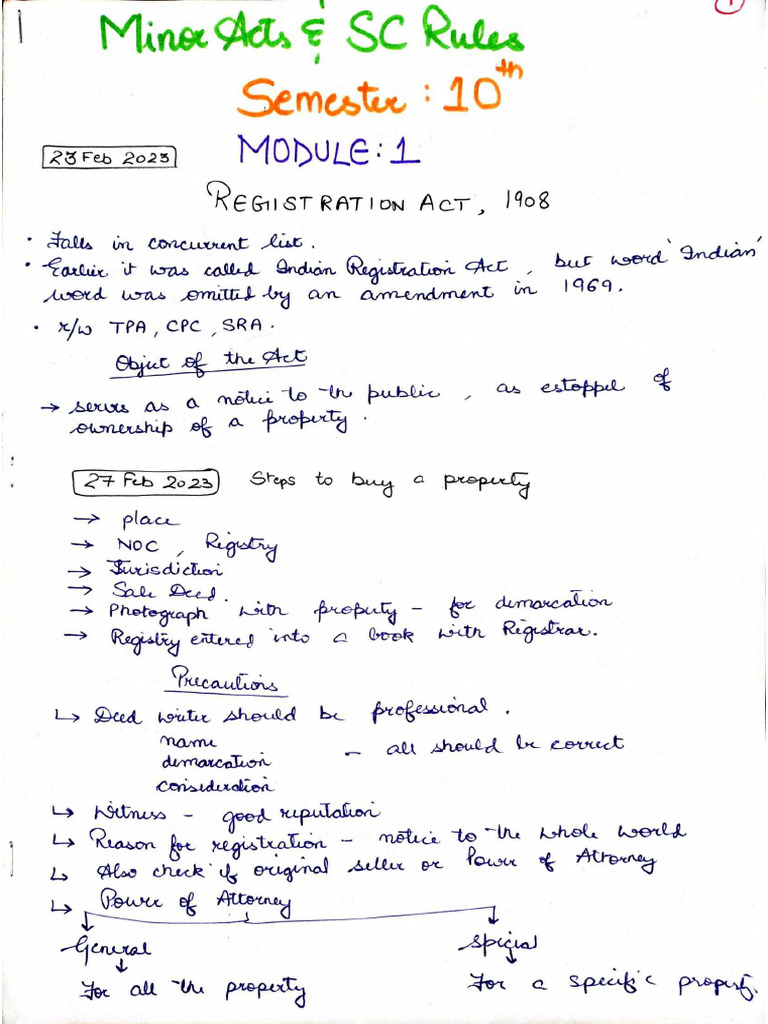 1
Minor Acts & SC Rules
Semester : 10th
MODULE : 1
23 Feb 2023
REGIISTRATION ACT, 1908
• Falls in concurrent list.
• Earlier it was called Indian Registration Act, but word 'Indian'
word was omitted by an amendment in 1969.
• r/w TPA, CPC, SRA.
Object of the Act
→ serves as a notice to the public, as estoppel of
ownership of a property.
27 Feb 2023 Steps to buy a property
→ place
→ NOC, Registry
→ Jurisdiction
→ Sale Deed.
→ Photograph with property - for demarcation
→ Registry entered into a book with Registrar.
Precautions
↳ Deed writer should be professional.
name
demarcation - all should be correct
consideration
↳ Witness - good reputation
↳ Reason for registration - notice to the whole world
↳ Also check if original seller or Power of Attorney
↳ Power of Attorney
General Special
For all the property For a specific property.